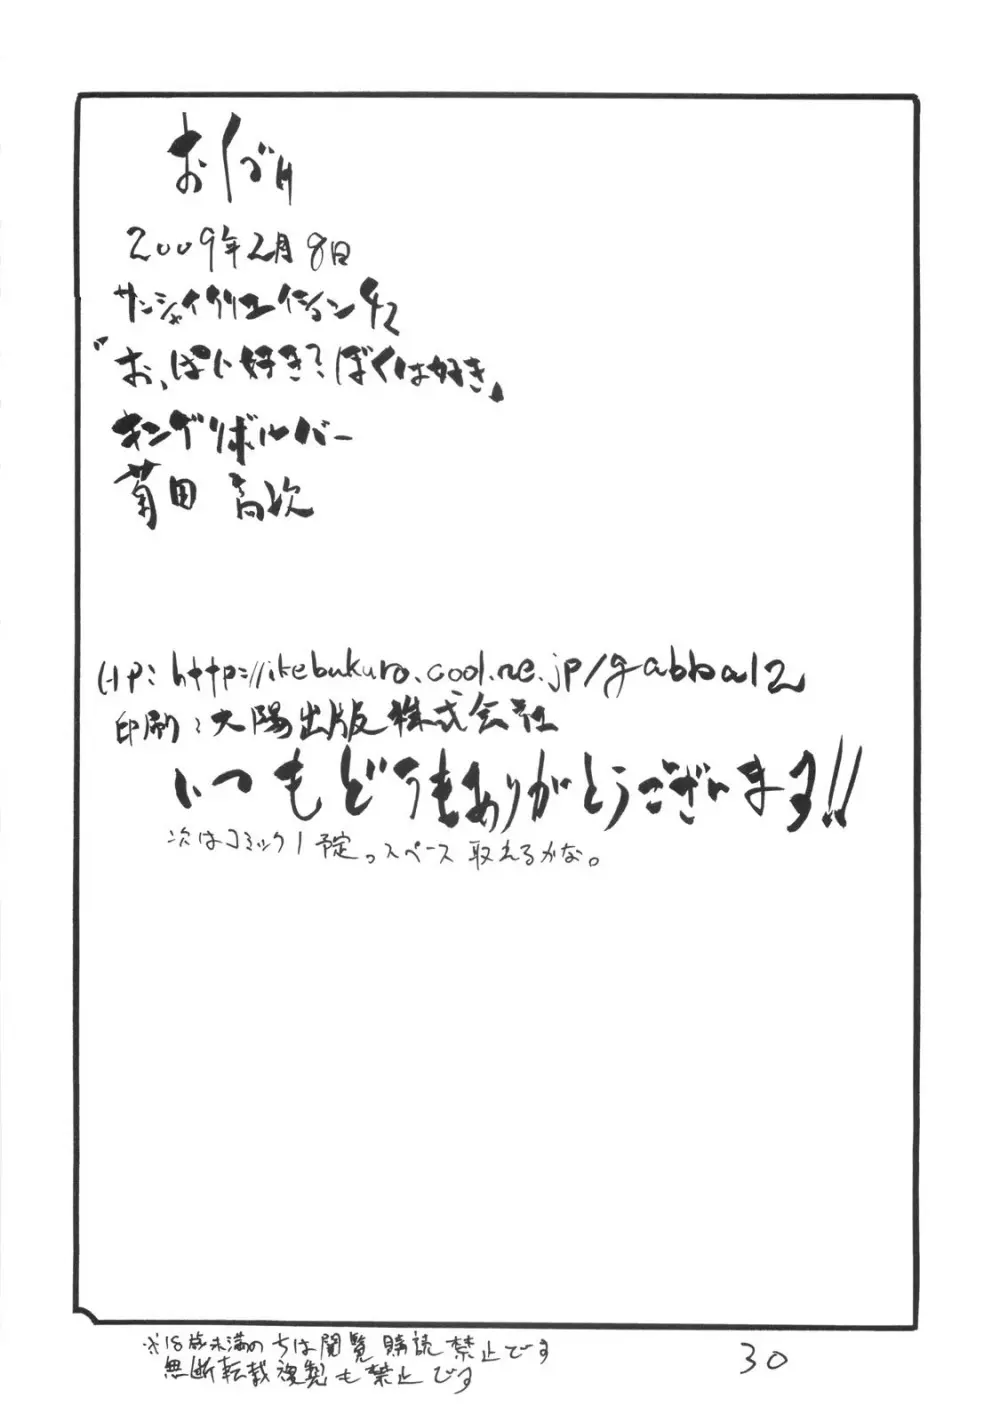 おくづけ
2009年2月8日
サンシャインクリエイション42
『おっぱい好き？ぼくは好き』
キングリボルバー
菊田 高次
HP：http://ikebukuro.cool.ne.jp/gabba12
印刷：大陽出版株式会社
いつもどうもありがとうございます!!
次はコミック1予定。スペース取れるかな。
※18歳未満の方は閲覧購読禁止です
無断転載複製も禁止です
30